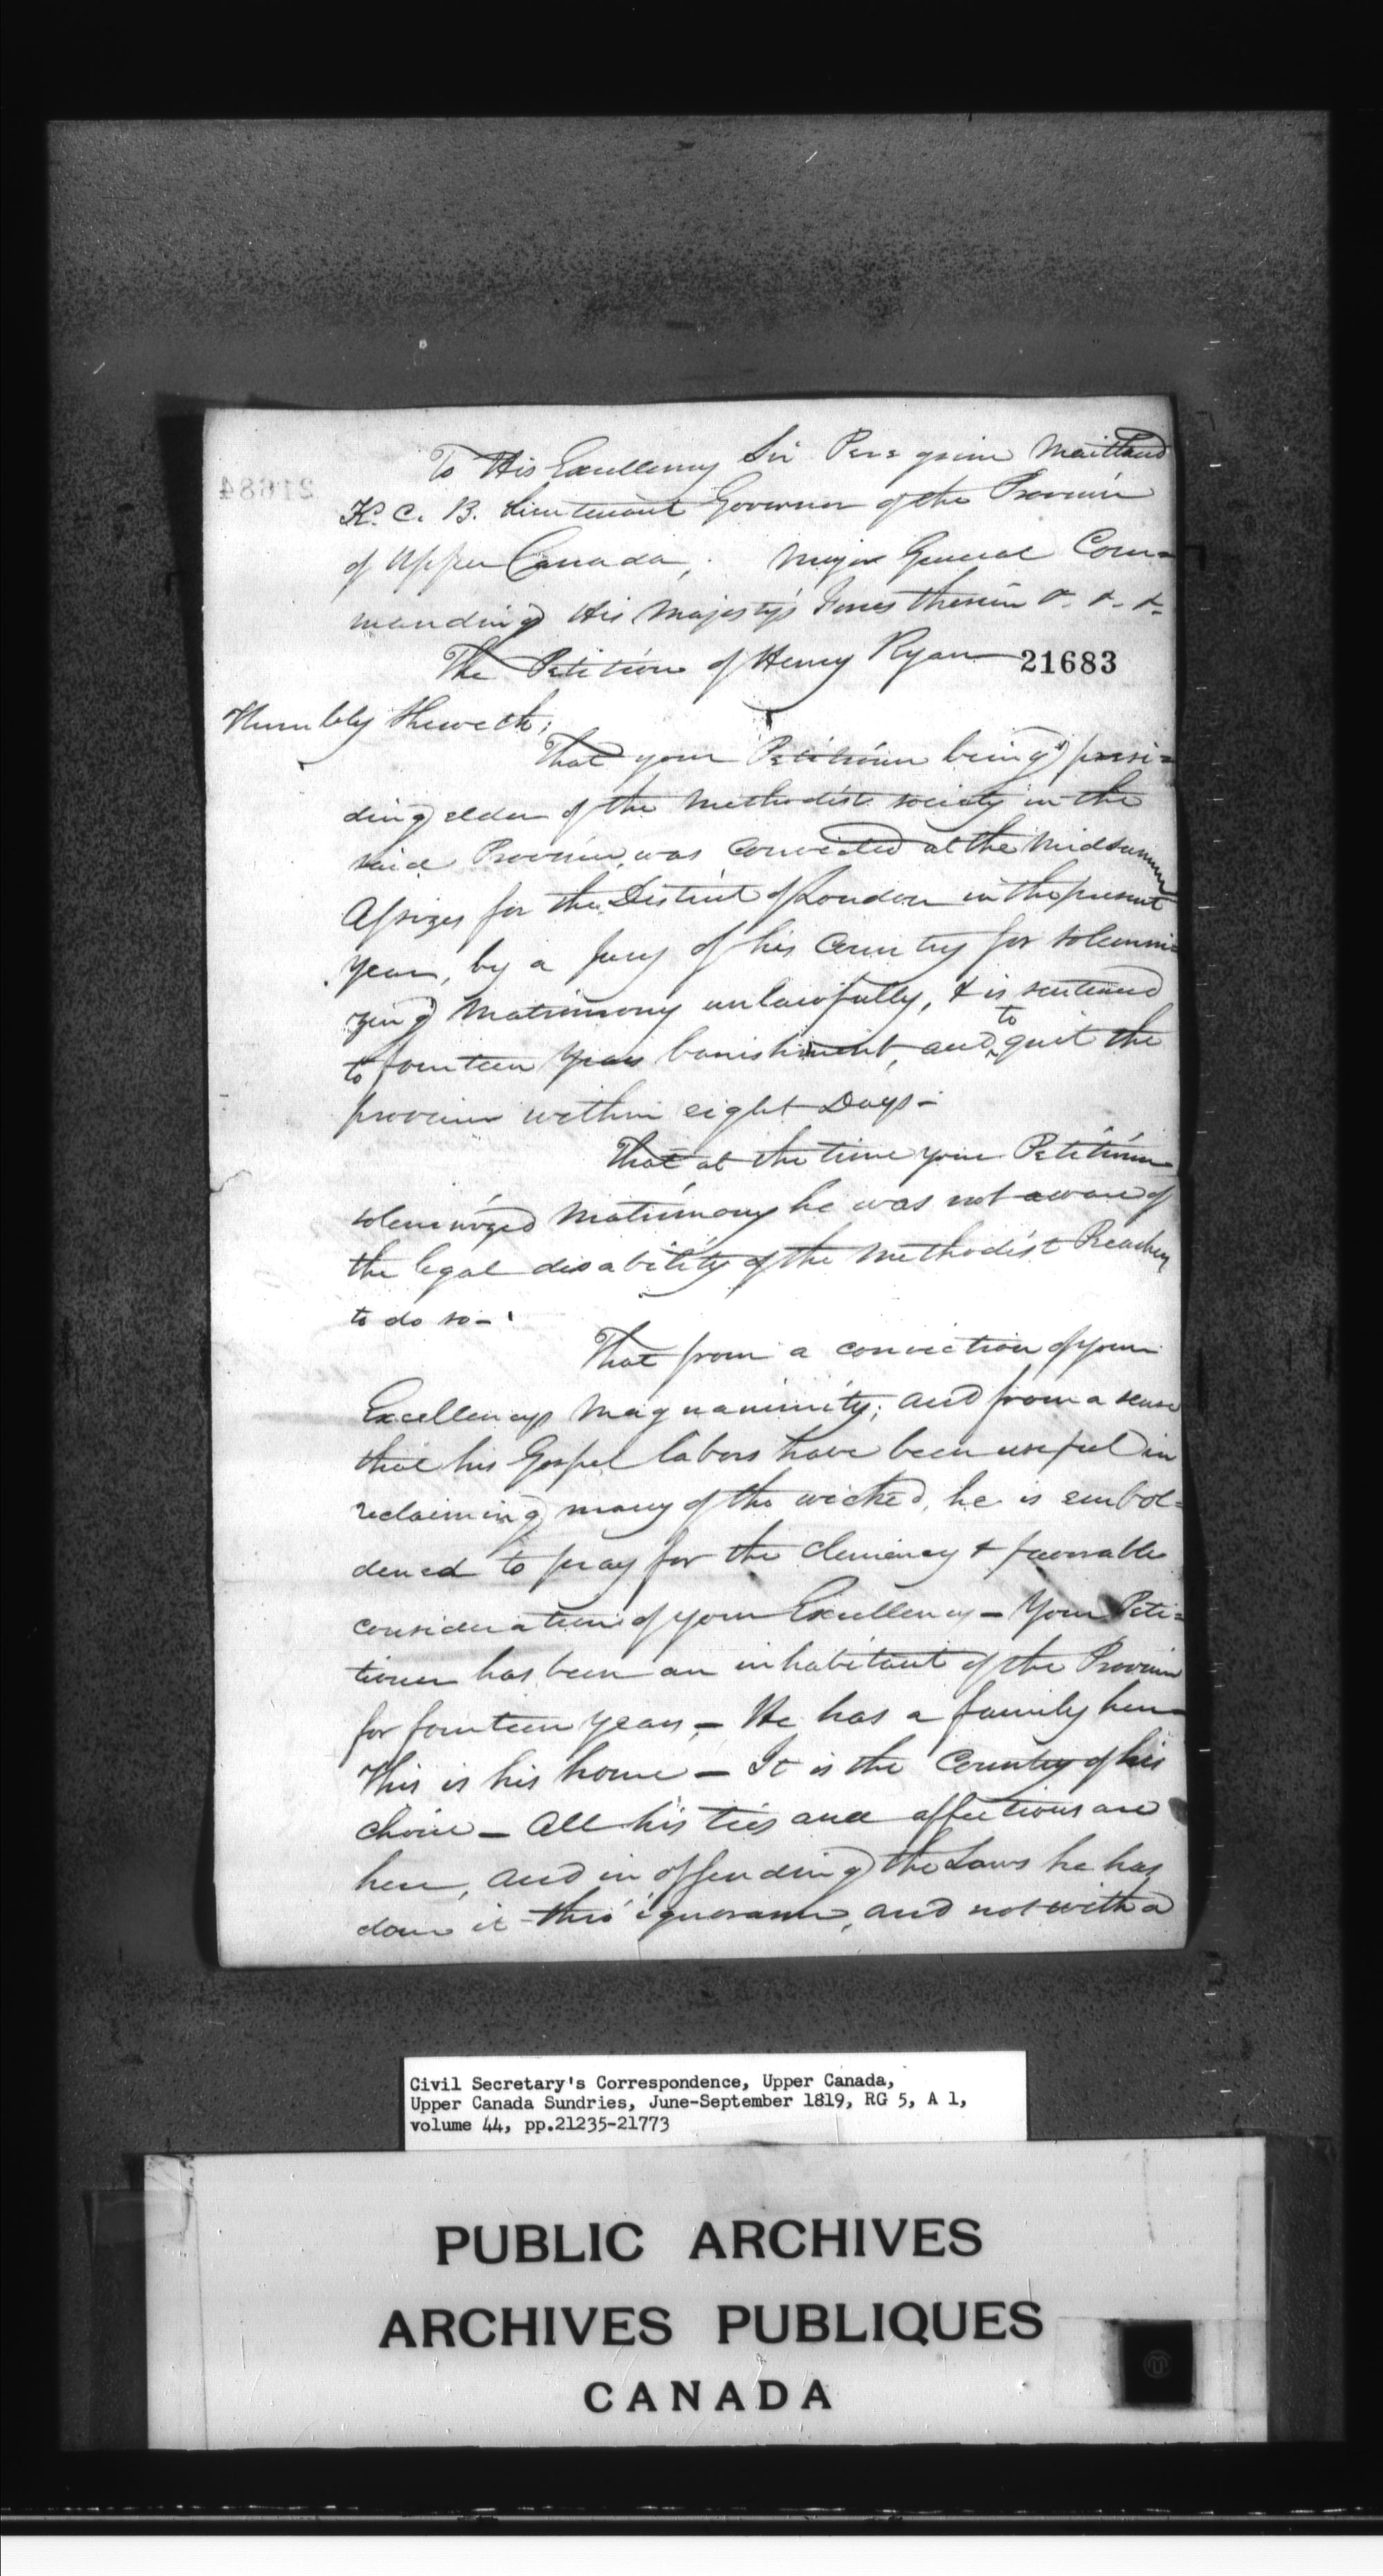 To His Excellency Sir Peregrine Maitland
K. C. B. Lieutenant Governor of the Province
of Upper Canada, Major General Com=
manding His Majesty's Forces therein &. &. &.
The Petition of Henry Ryan
21683
21684
Humbly Sheweth;
That your Petitioner being presi=
ding elder of the Methodist society in the
said Province, was convicted at the Midsummer
Assizes for the District of London in the present
year, by a Jury of his Country for solemni=
zing Matrimony unlawfully, & is sentenced
to fourteen years banishment, and to quit the
province within eight Days—
That at the time your Petitioner
solemnized Matrimony he was not aware of
the legal disability of the Methodist Preachers
to do so—
That from a conviction of your
Excellencys Magnanimity; and from a sense
that his Gospel labors have been useful in
reclaiming many of the wicked, he is embol=
dened to pray for the clemency & favorable
consideration of your Excellency — Your Peti=
tioner has been an inhabitant of the Province
for fourteen years, — He has a family here—
This is his home — It is the Country of his
choice — All his ties and affections are
here, and in offending the Laws he has
done it thro' ignorance, and not with a
Civil Secretary's Correspondence, Upper Canada,
Upper Canada Sundries, June-September 1819, RG 5, A 1,
volume 44, pp.21235-21773
PUBLIC ARCHIVES
ARCHIVES PUBLIQUES
CANADA